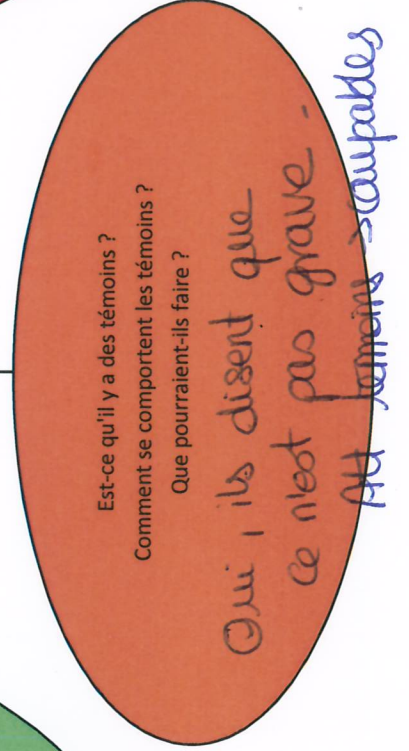 Est-ce qu'il y a des témoins ?
Comment se comportent les témoins ?
Que pourraient-ils faire ?
Oui, ils disent que
ce n'est pas grave.
Att témoins → coupables